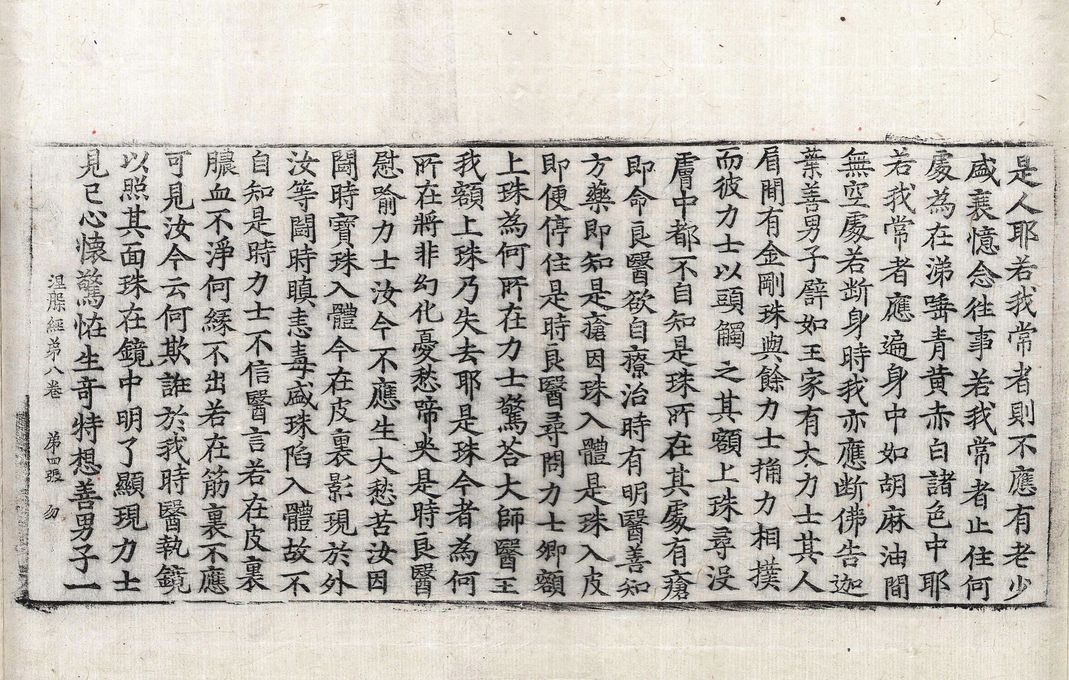 是人耶若我常者則不應有老少
盛衰憶念往事若我常者止住何
處為在涕唾青黃赤白諸色中耶
若我常者應遍身中如胡麻油間
無空處若断身時我亦應断佛告迦
葉善男子譬如王家有大力士其人
眉間有金剛珠與餘力士捔力相撲
而彼力士以頭觸之其額上珠尋沒
膚中都不自知是珠所在其處有瘡
即命良醫欲自療治時有明醫善知
方藥即知是瘡因珠入體是珠入皮
即便停住是時良醫尋問力士卿額
上珠為何所在力士驚荅大師醫王
我額上珠乃失去耶是珠今者為何
所在將非幻化憂愁啼哭是時良醫
慰喻力士汝今不應生大愁苦汝因
鬪時寶珠入體今在皮裏影現於外
汝等鬪時瞋恚毒盛珠陷入體故不
自知是時力士不信醫言若在皮裏
膿血不淨何緣不出若在筋裏不應
可見汝今云何欺誑於我時醫執鏡
以照其面珠在鏡中明了顯現力士
見已心懷驚恠生奇特想善男子一
涅槃經第八卷 第四張